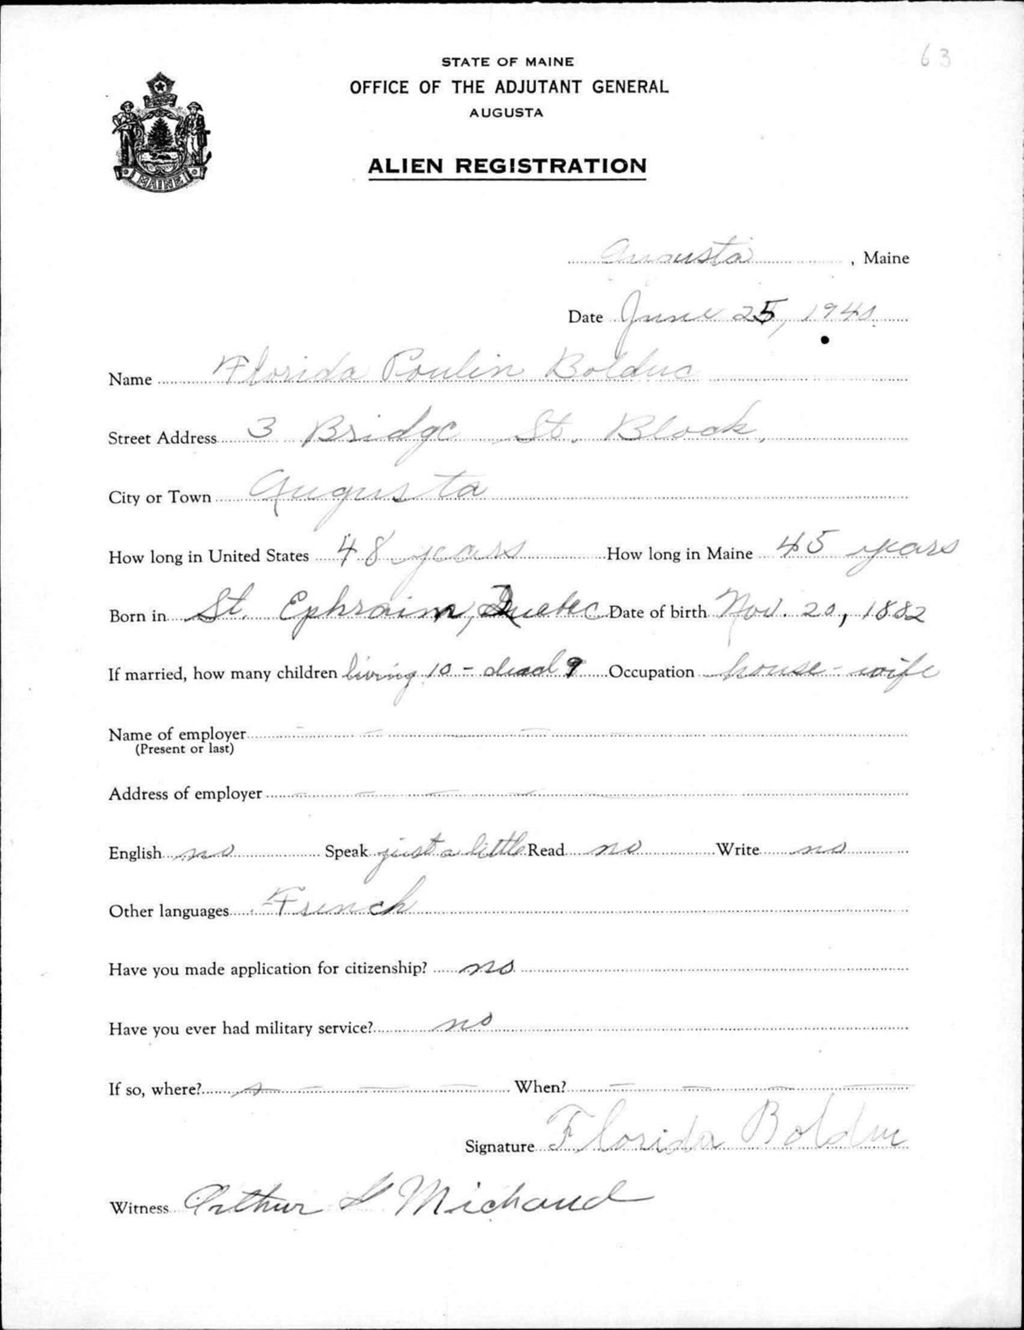 63
STATE OF MAINE
OFFICE OF THE ADJUTANT GENERAL
AUGUSTA
ALIEN REGISTRATION
MAINE
Augusta, Maine
Date June 25, 1940
Name Florida Poulin Bolduc
Street Address 3 Bridge St. Block.
City or Town Augusta
How long in United States 48 years How long in Maine 45 years
Born in St. Ephraim, Quebec Date of birth Nov. 20, 1882
If married, how many children living 10 - dead 9 Occupation house-wife
Name of employer
(Present or last)
Address of employer
English no Speak just a little Read no Write no
Other languages French
Have you made application for citizenship? no
Have you ever had military service? no
If so, where? When?
Signature Florida Bolduc
Witness Arthur Michaud